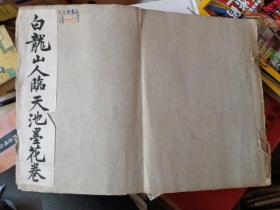 白龍山人臨天池墨花卷